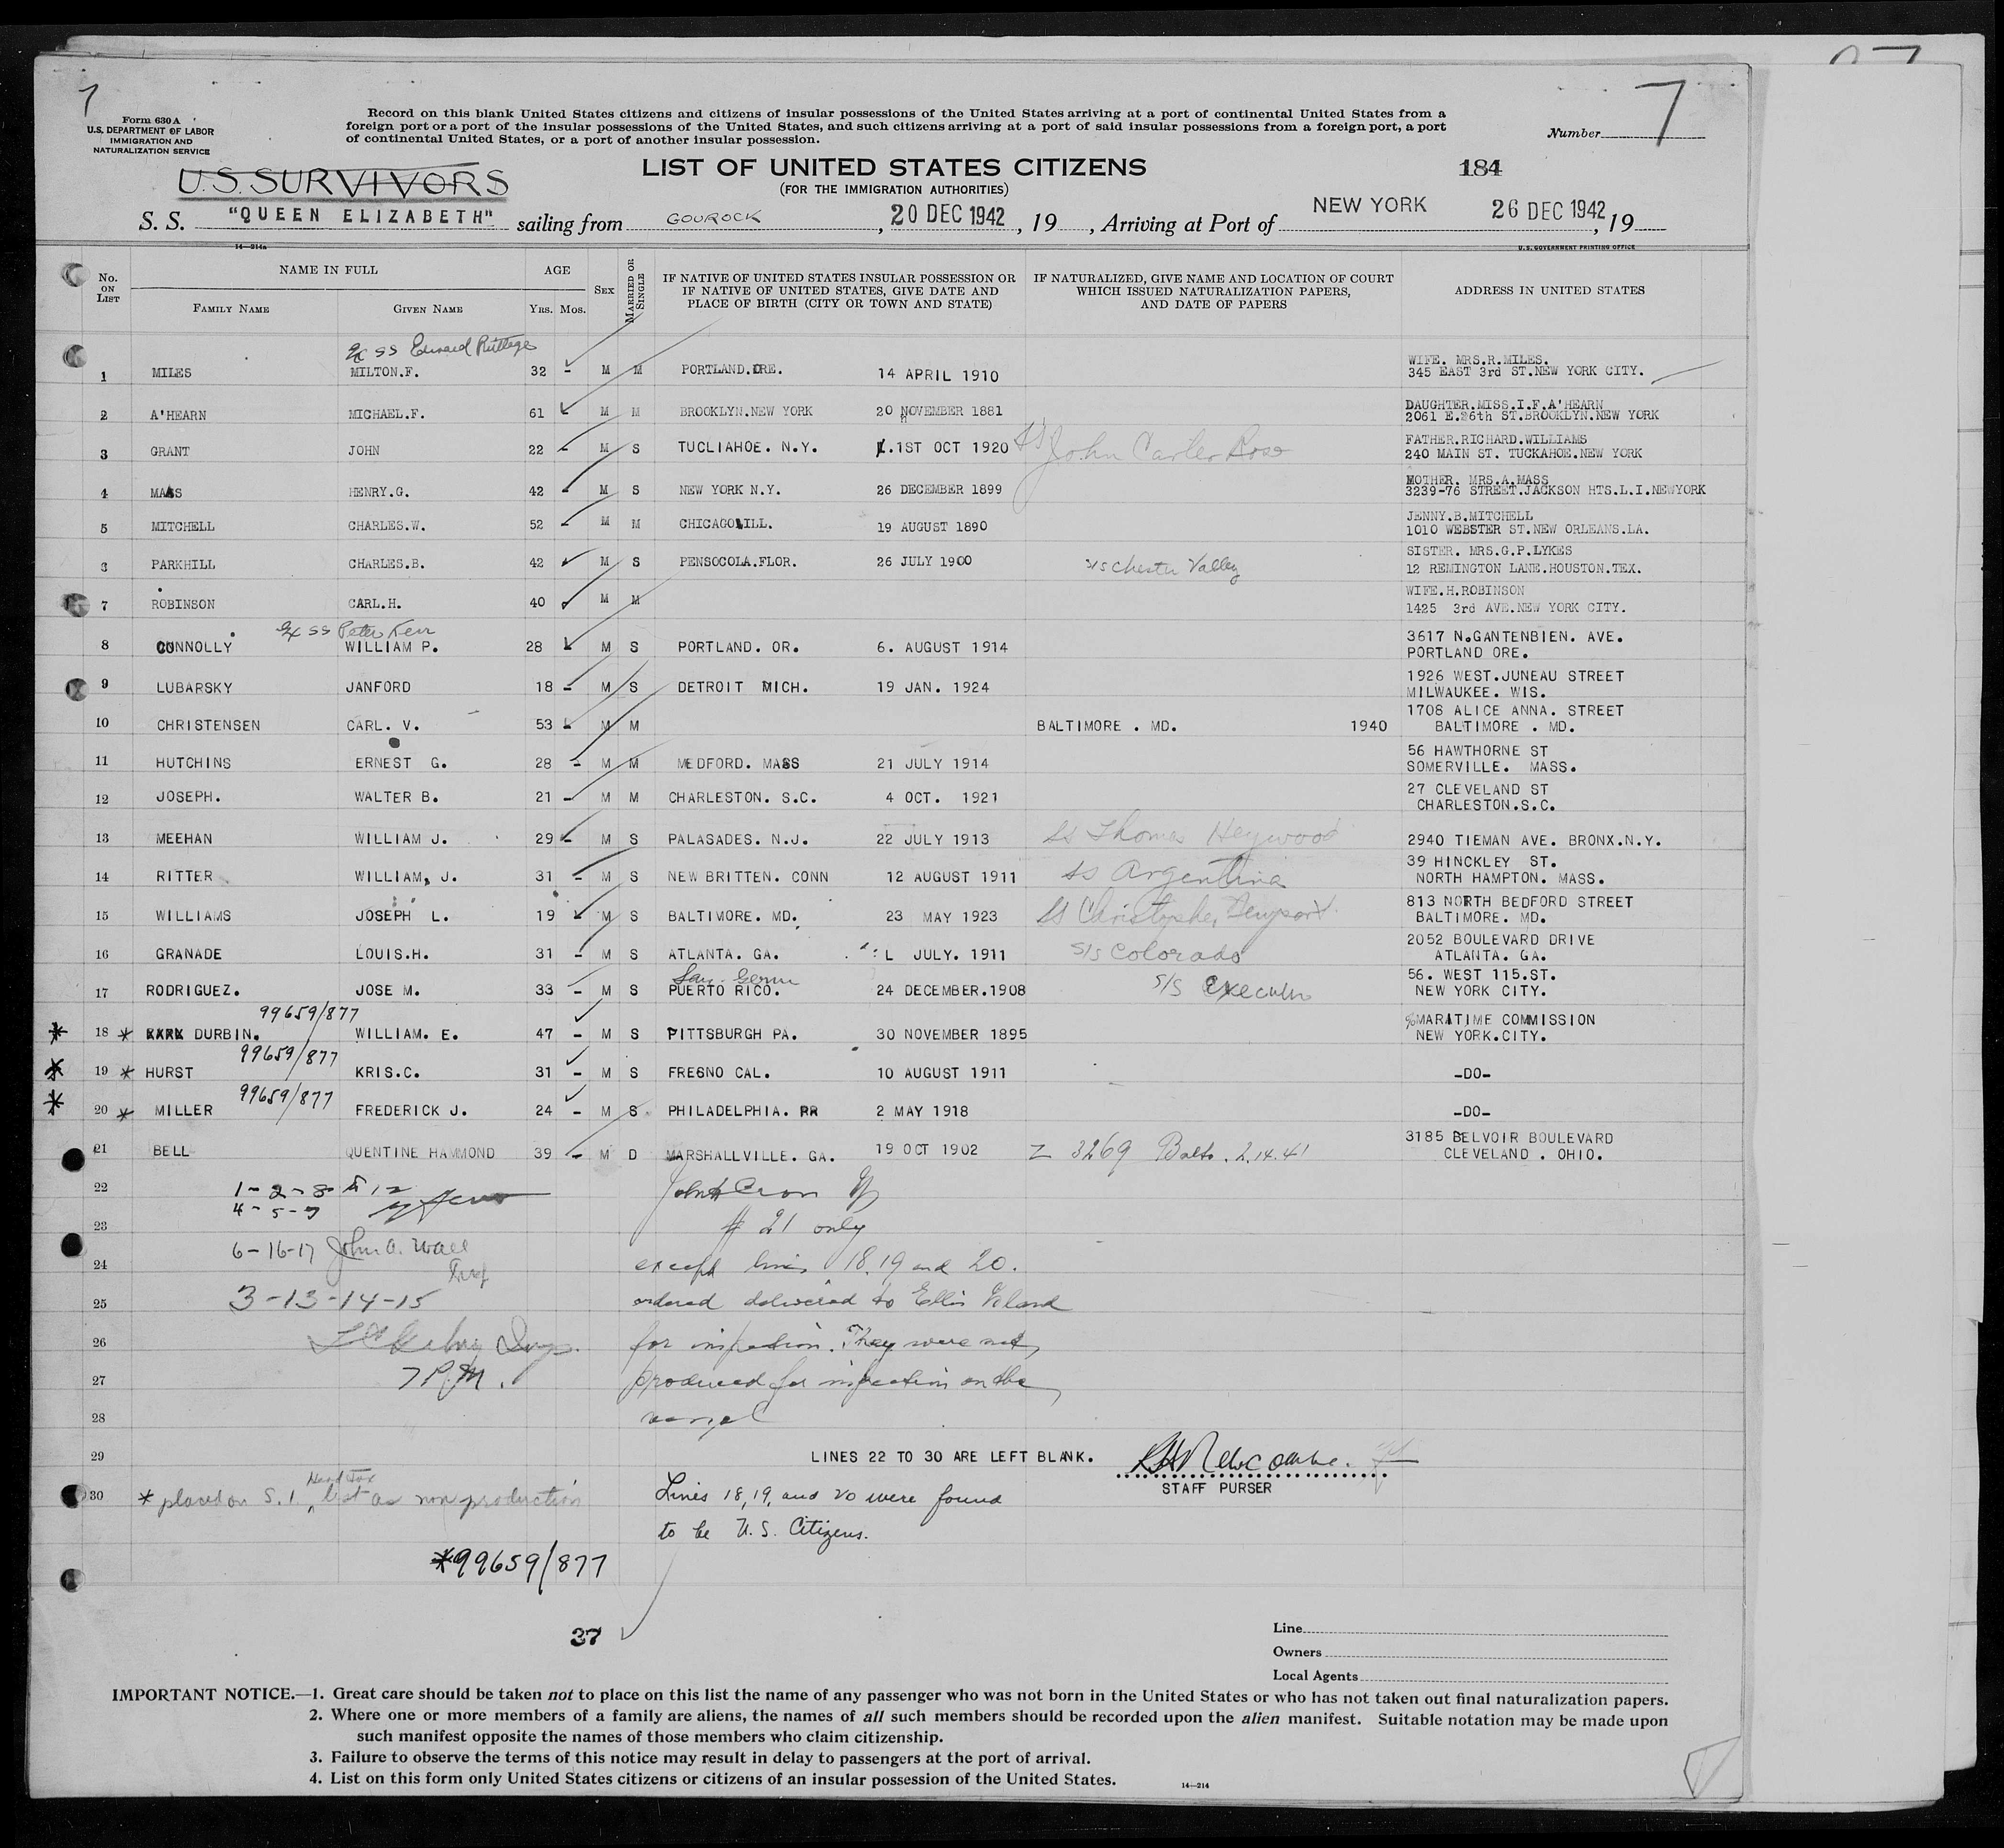 7
7
Form 630 A
U.S. DEPARTMENT OF LABOR
IMMIGRATION AND
NATURALIZATION SERVICE
Record on this blank United States citizens and citizens of insular possessions of the United States arriving at a port of continental United States from a
foreign port or a port of the insular possessions of the United States, and such citizens arriving at a port of said insular possessions from a foreign port, a port
of continental United States, or a port of another insular possession.
Number 7
U.S. SURVIVORS
LIST OF UNITED STATES CITIZENS
184
(FOR THE IMMIGRATION AUTHORITIES)
S. S. "QUEEN ELIZABETH" sailing from GOUROCK, 20 DEC 1942, 19, Arriving at Port of NEW YORK 26 DEC 1942, 19
14—214a
U.S. GOVERNMENT PRINTING OFFICE
No. ON LIST
NAME IN FULL
FAMILY NAME
GIVEN NAME
AGE
YRS. MOS.
SEX
MARRIED OR SINGLE
IF NATIVE OF UNITED STATES INSULAR POSSESSION OR
IF NATIVE OF UNITED STATES, GIVE DATE AND
PLACE OF BIRTH (CITY OR TOWN AND STATE)
IF NATURALIZED, GIVE NAME AND LOCATION OF COURT
WHICH ISSUED NATURALIZATION PAPERS,
AND DATE OF PAPERS
ADDRESS IN UNITED STATES
Ex SS Edward Rutlege
1 MILES MILTON.F. 32 - M M PORTLAND.ORE. 14 APRIL 1910 WIFE. MRS.R.MILES.
345 EAST 3rd ST.NEW YORK CITY.
2 A'HEARN MICHAEL.F. 61 - M M BROOKLYN.NEW YORK 20 NOVEMBER 1881 DAUGHTER.MISS.I.F.A'HEARN
2061 E.26th ST.BROOKLYN.NEW YORK
3 GRANT JOHN 22 - M S TUCLIAHOE. N.Y. 1ST OCT 1920 SS John Carter Rose FATHER.RICHARD.WILLIAMS
240 MAIN ST. TUCKAHOE.NEW YORK
4 MASS HENRY.G. 42 - M S NEW YORK N.Y. 26 DECEMBER 1899 MOTHER. MRS.A.MASS
3239-76 STREET.JACKSON HTS.L.I.NEWYORK
5 MITCHELL CHARLES.W. 52 - M M CHICAGO.ILL. 19 AUGUST 1890 JENNY.B.MITCHELL
1010 WEBSTER ST.NEW ORLEANS.LA.
6 PARKHILL CHARLES.B. 42 - M S PENSOCOLA.FLOR. 26 JULY 1900 s/s Chester Valley SISTER. MRS.G.P.LYKES
12 REMINGTON LANE.HOUSTON.TEX.
7 ROBINSON CARL.H. 40 - M M WIFE.H.ROBINSON
1425 3rd AVE.NEW YORK CITY.
Ex SS Peter Kerr
8 CONNOLLY WILLIAM P. 28 - M S PORTLAND. OR. 6. AUGUST 1914 3617 N.GANTENBIEN. AVE.
PORTLAND ORE.
9 LUBARSKY JANFORD 18 - M S DETROIT MICH. 19 JAN. 1924 1926 WEST.JUNEAU STREET
MILWAUKEE. WIS.
10 CHRISTENSEN CARL. V. 53 - M M BALTIMORE . MD. 1940 1708 ALICE ANNA. STREET
BALTIMORE . MD.
11 HUTCHINS ERNEST G. 28 - M M MEDFORD. MASS 21 JULY 1914 56 HAWTHORNE ST
SOMERVILLE. MASS.
12 JOSEPH. WALTER B. 21 - M M CHARLESTON. S.C. 4 OCT. 1921 27 CLEVELAND ST
CHARLESTON.S.C.
13 MEEHAN WILLIAM J. 29 - M S PALASADES. N.J. 22 JULY 1913 SS Thomas Heywood 2940 TIEMAN AVE. BRONX.N.Y.
14 RITTER WILLIAM, J. 31 - M S NEW BRITTEN. CONN 12 AUGUST 1911 SS Argentina 39 HINCKLEY ST.
NORTH HAMPTON. MASS.
15 WILLIAMS JOSEPH L. 19 - M S BALTIMORE. MD. 23 MAY 1923 SS Christopher Newport 813 NORTH BEDFORD STREET
BALTIMORE. MD.
16 GRANADE LOUIS.H. 31 - M S ATLANTA. GA. L JULY. 1911 S/S Colorado 2052 BOULEVARD DRIVE
ATLANTA. GA.
San German
17 RODRIGUEZ. JOSE M. 33 - M S PUERTO RICO. 24 DECEMBER.1908 S/S Executor 56. WEST 115.ST.
NEW YORK CITY.
99659/877
* 18 * DURBIN. WILLIAM. E. 47 - M S PITTSBURGH PA. 30 NOVEMBER 1895 c/o MARITIME COMMISSION
NEW YORK.CITY.
99659/877
* 19 * HURST KRIS.C. 31 - M S FRESNO CAL. 10 AUGUST 1911 -DO-
99659/877
* 20 * MILLER FREDERICK J. 24 - M S PHILADELPHIA. 2 MAY 1918 -DO-
21 BELL QUENTINE HAMMOND 39 - M D MARSHALLVILLE. GA. 19 OCT 1902 Z 3269 Balto. 2.14.41 3185 BELVOIR BOULEVARD
CLEVELAND . OHIO.
22 1-2-8 to 12
4-5-7
23 # 21 only
24 6-16-17 John A. Wall except lines 18, 19 and 20.
25 3-13-14-15 ordered delivered to Ellis Island
26 for inspection. They were not
27 7 P.M. produced for inspection on the
28 vessel
29 LINES 22 TO 30 ARE LEFT BLANK.
STAFF PURSER
30 * placed on S.I. list as non production
Lines 18, 19, and 20 were found
to be U.S. Citizens.
*99659/877
37
Line
Owners
Local Agents
IMPORTANT NOTICE.—1. Great care should be taken not to place on this list the name of any passenger who was not born in the United States or who has not taken out final naturalization papers.
2. Where one or more members of a family are aliens, the names of all such members should be recorded upon the alien manifest. Suitable notation may be made upon
such manifest opposite the names of those members who claim citizenship.
3. Failure to observe the terms of this notice may result in delay to passengers at the port of arrival.
4. List on this form only United States citizens or citizens of an insular possession of the United States.
14—214